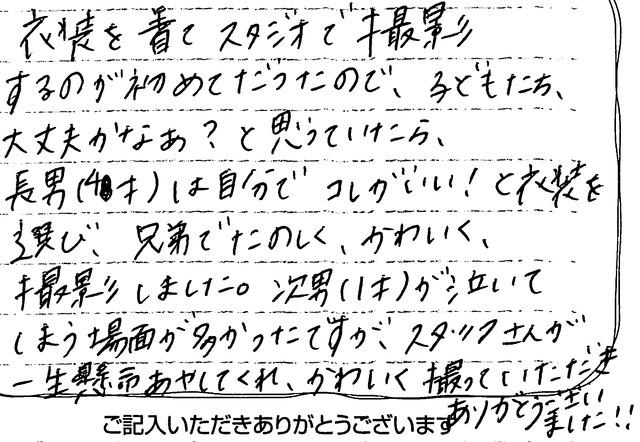 衣装を着てスタジオで撮影
するのが初めてだったので、子どもたち、
大丈夫かなあ？と思っていたら、
長男(4才)は自分でコレがいい！と衣装を
選び、兄弟でたのしく、かわいく、
撮影しました。次男(1才)が泣いて
しまう場面が多かったですが、スタッフさんが
一生懸命あやしてくれ、かわいく撮っていただき
ありがとうござい
ました!!
ご記入いただきありがとうございます